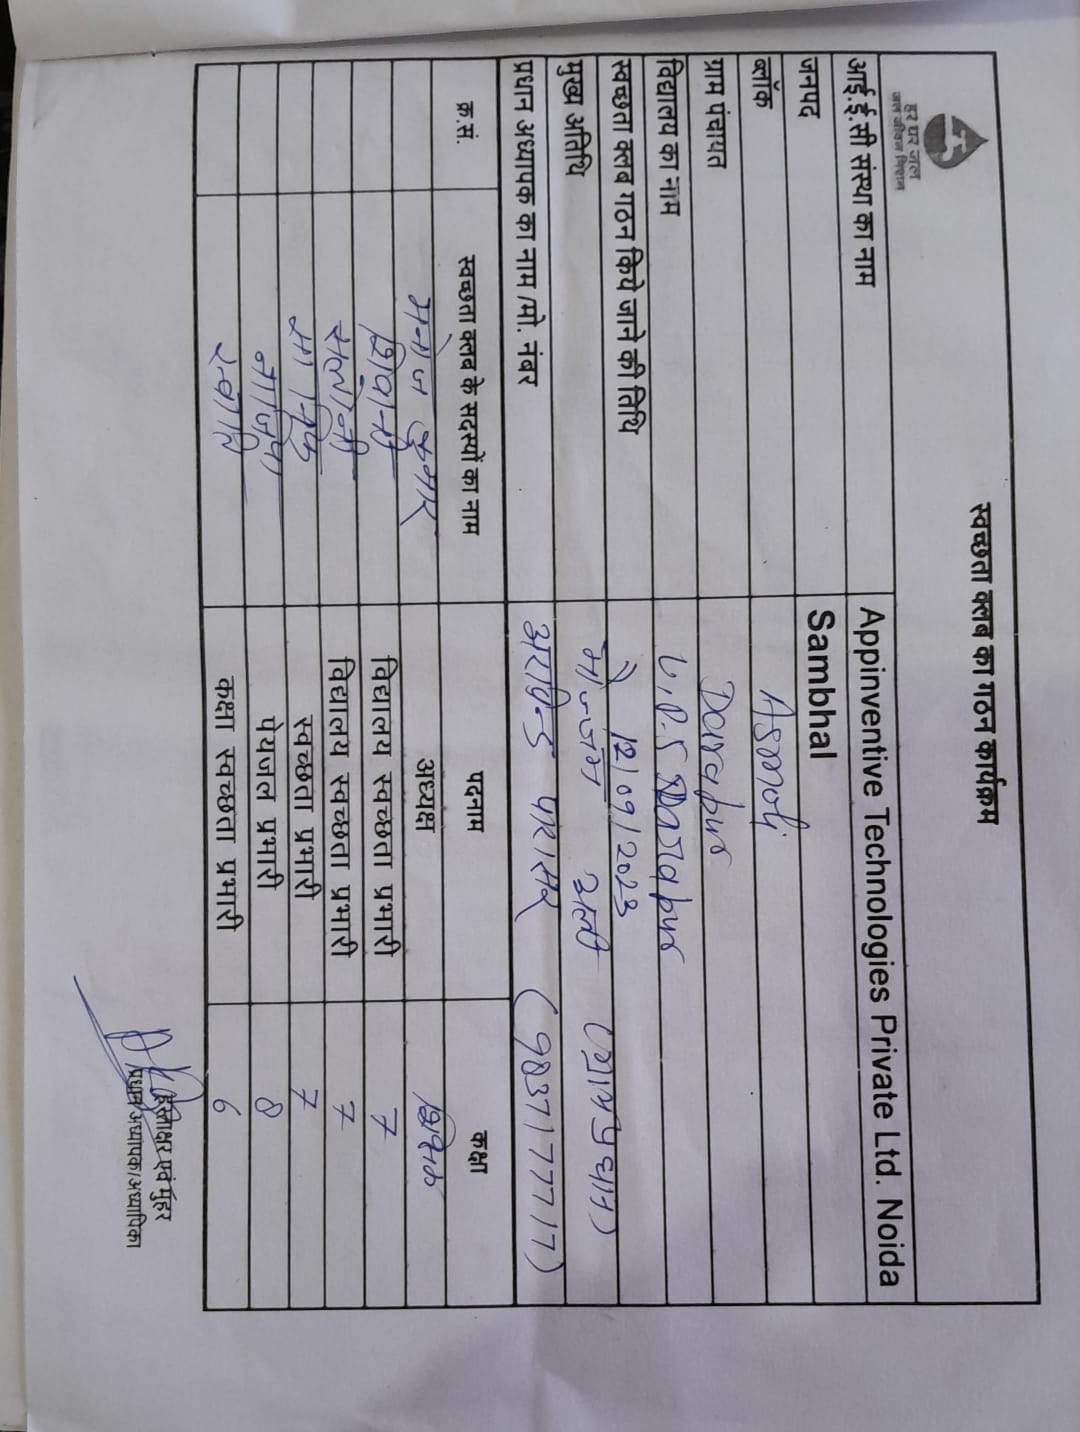 हर घर जल
जल जीवन मिशन
स्वच्छता क्लब का गठन कार्यक्रम
आई.ई.सी संस्था का नाम Appinventive Technologies Private Ltd. Noida
जनपद Sambhal
ब्लॉक Asmoli
ग्राम पंचायत Darapur
विद्यालय का नाम U.P.S Darapur
स्वच्छता क्लब गठन किये जाने की तिथि 12/09/2023
मुख्य अतिथि अली (ग्राम प्रधान)
प्रधान अध्यापक का नाम /मो. नंबर अरविन्द परासर (9837177717)
क्र.सं. स्वच्छता क्लब के सदस्यों का नाम पदनाम कक्षा
मनोज कुमार अध्यक्ष शिक्षक
शिवानी विद्यालय स्वच्छता प्रभारी 7
सलोनी विद्यालय स्वच्छता प्रभारी 7
स्वच्छता प्रभारी 7
नाजिया पेयजल प्रभारी 8
स्वाति कक्षा स्वच्छता प्रभारी 6
हस्ताक्षर एवं मुहर
प्रधान अध्यापक/अध्यापिका